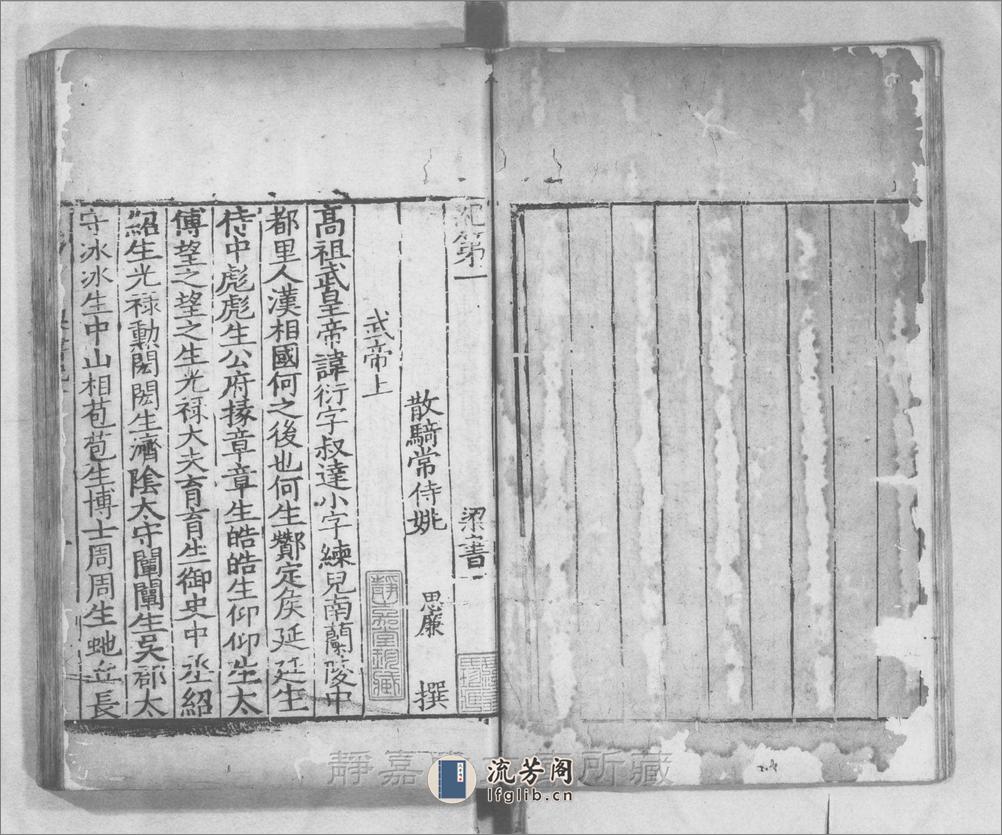 紀第一
梁書
散騎常侍姚 思廉 撰
武帝上
高祖武皇帝諱衍字叔達小字練兒南蘭陵中
都里人漢相國何之後也何生酇定侯延延生
侍中彪彪生公府掾章章生皓皓生仰仰生太
傅望之望之生光祿大夫育育生御史中丞紹
紹生光祿勳閎閎生濟陰太守闡闡生吳郡太
守冰冰生中山相苞苞生博士周周生虵丘長
靜嘉堂珍藏
靜嘉 所藏
流芳阁
lfglib.cn